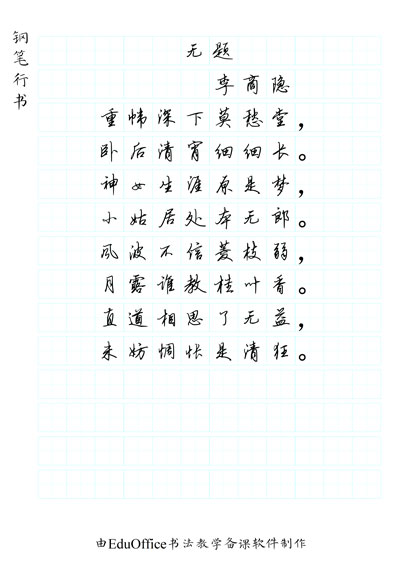 钢笔行书
无题
李商隐
重帏深下莫愁堂，
卧后清宵细细长。
神女生涯原是梦，
小姑居处本无郎。
风波不信菱枝弱，
月露谁教桂叶香。
直道相思了无益，
未妨惆怅是清狂。
由EduOffice书法教学备课软件制作